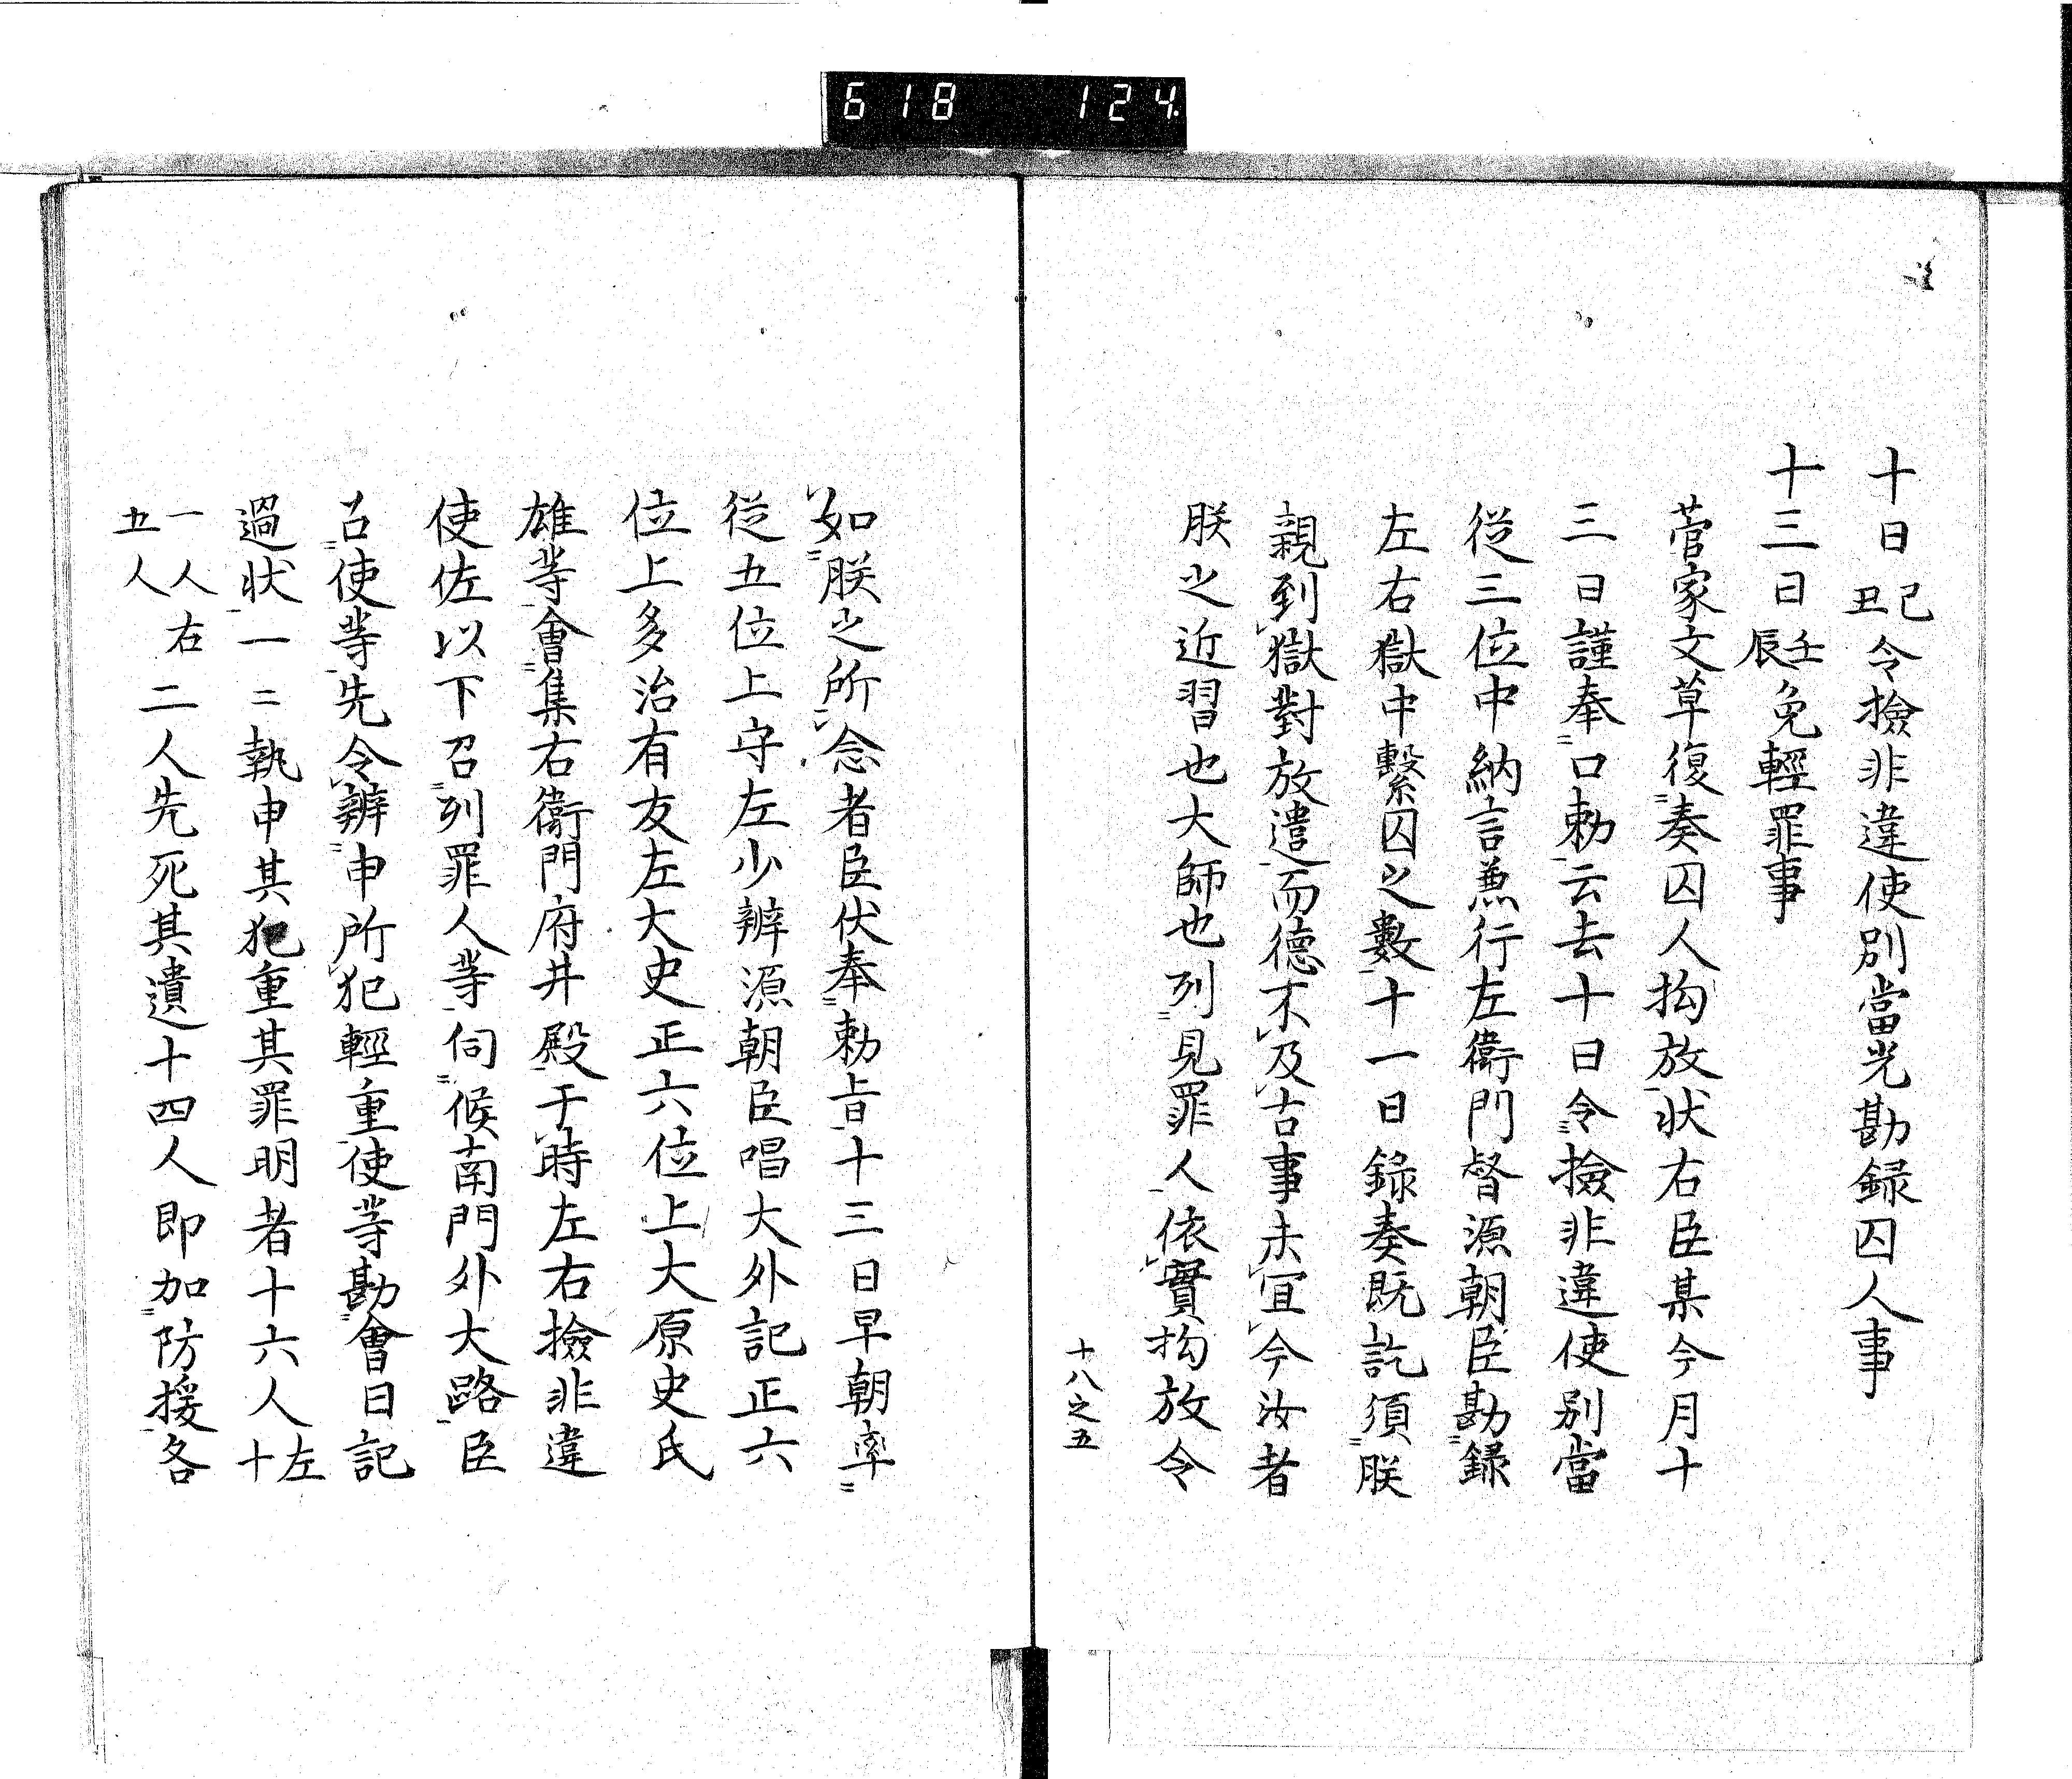 618 124
十日己丑令撿非違使別當光勘録囚人事
十三日壬辰免輕罪事
菅家文草復奏囚人拘放状右臣某今月十
三日謹奉口勅云去十日令撿非違使別當
從三位中納言兼行左衛門督源朝臣勘録
左右獄中繫囚之數十一日録奏既訖須朕
親到獄對放遣而德不及古事未宜今汝者
朕之近習也大師也列見罪人依實拘放令
十八之五
如朕之所念者臣伏奉勅旨十三日早朝率
從五位上守左少辨源朝臣唱大外記正六
位上多治有友左大史正六位上大原史氏
雄等會集右衛門府井殿于時左右撿非違
使佐以下召列罪人等伺候南門外大路臣
召使等先令辨申所犯輕重使等勘會日記
過状一二執申其犯重其罪明者十六人左十
一人右五人二人先死其遺十四人即加防援各